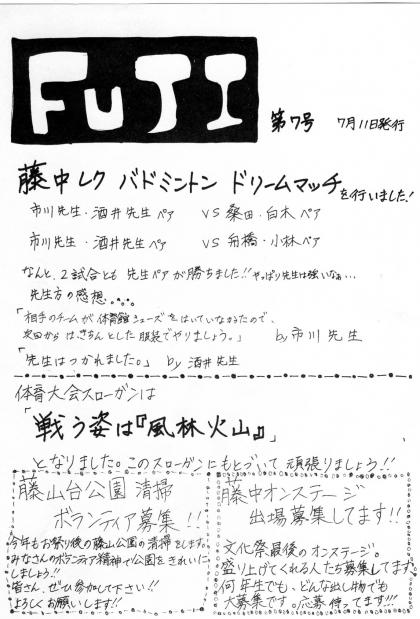 FUJI
第7号 7月11日発行
藤中レク バドミントン ドリームマッチを行いました!
市川先生・酒井先生ペア VS 桑田・白木ペア
市川先生・酒井先生ペア VS 舟橋・小林ペア
なんと、2試合とも 先生ペアが勝ちました!!やっぱり先生は強いなぁ…
先生方の感想....
「相手のチームが体育館シューズをはいていなかったので、
次回からは、きちんとした服装でやりましょう。」 by 市川先生
「先生はつかれました。」 by 酒井先生
体育大会スローガンは
「戦う姿は『風林火山』」
となりました。このスローガンにもとづいて頑張りましょう!!
藤山台公園 清掃
ボランティア募集!!
今年もお祭り後の藤山公園の清掃をします。
みなさんのボランティア精神で公園をきれいに
しましょう!!
皆さん、ぜひ参加して下さい!!
よろしくお願いします!!
藤中オンステージ
出場募集してます!!
文化祭最後のオンステージ。
盛り上げてくれる人たち募集してます。
何年生でも、どんな出し物でも
大募集です。応募待ってます!!!